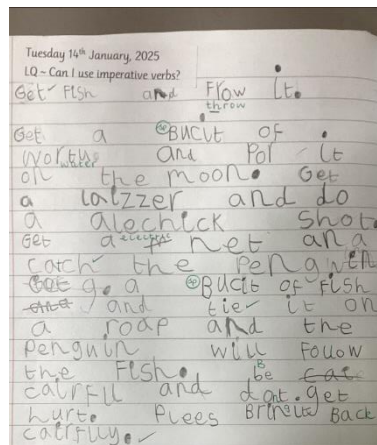 Tuesday 14th January, 2025
LQ ~ Can I use imperative verbs?
Get Fish and Frow it.
throw
Get a sp BUCIt of
worty and Por it
water
on the moon. Get
a lalzzer and do
a alechick Shot.
electric
Get a net and
catch the Pengwin
Get g. a sp BUCit of Fish
and tie it on
a roap and the
Penguin will Follow
the Fish. be
cairfll and dont. get
hurt. Plees Bring it Back
cairflly.